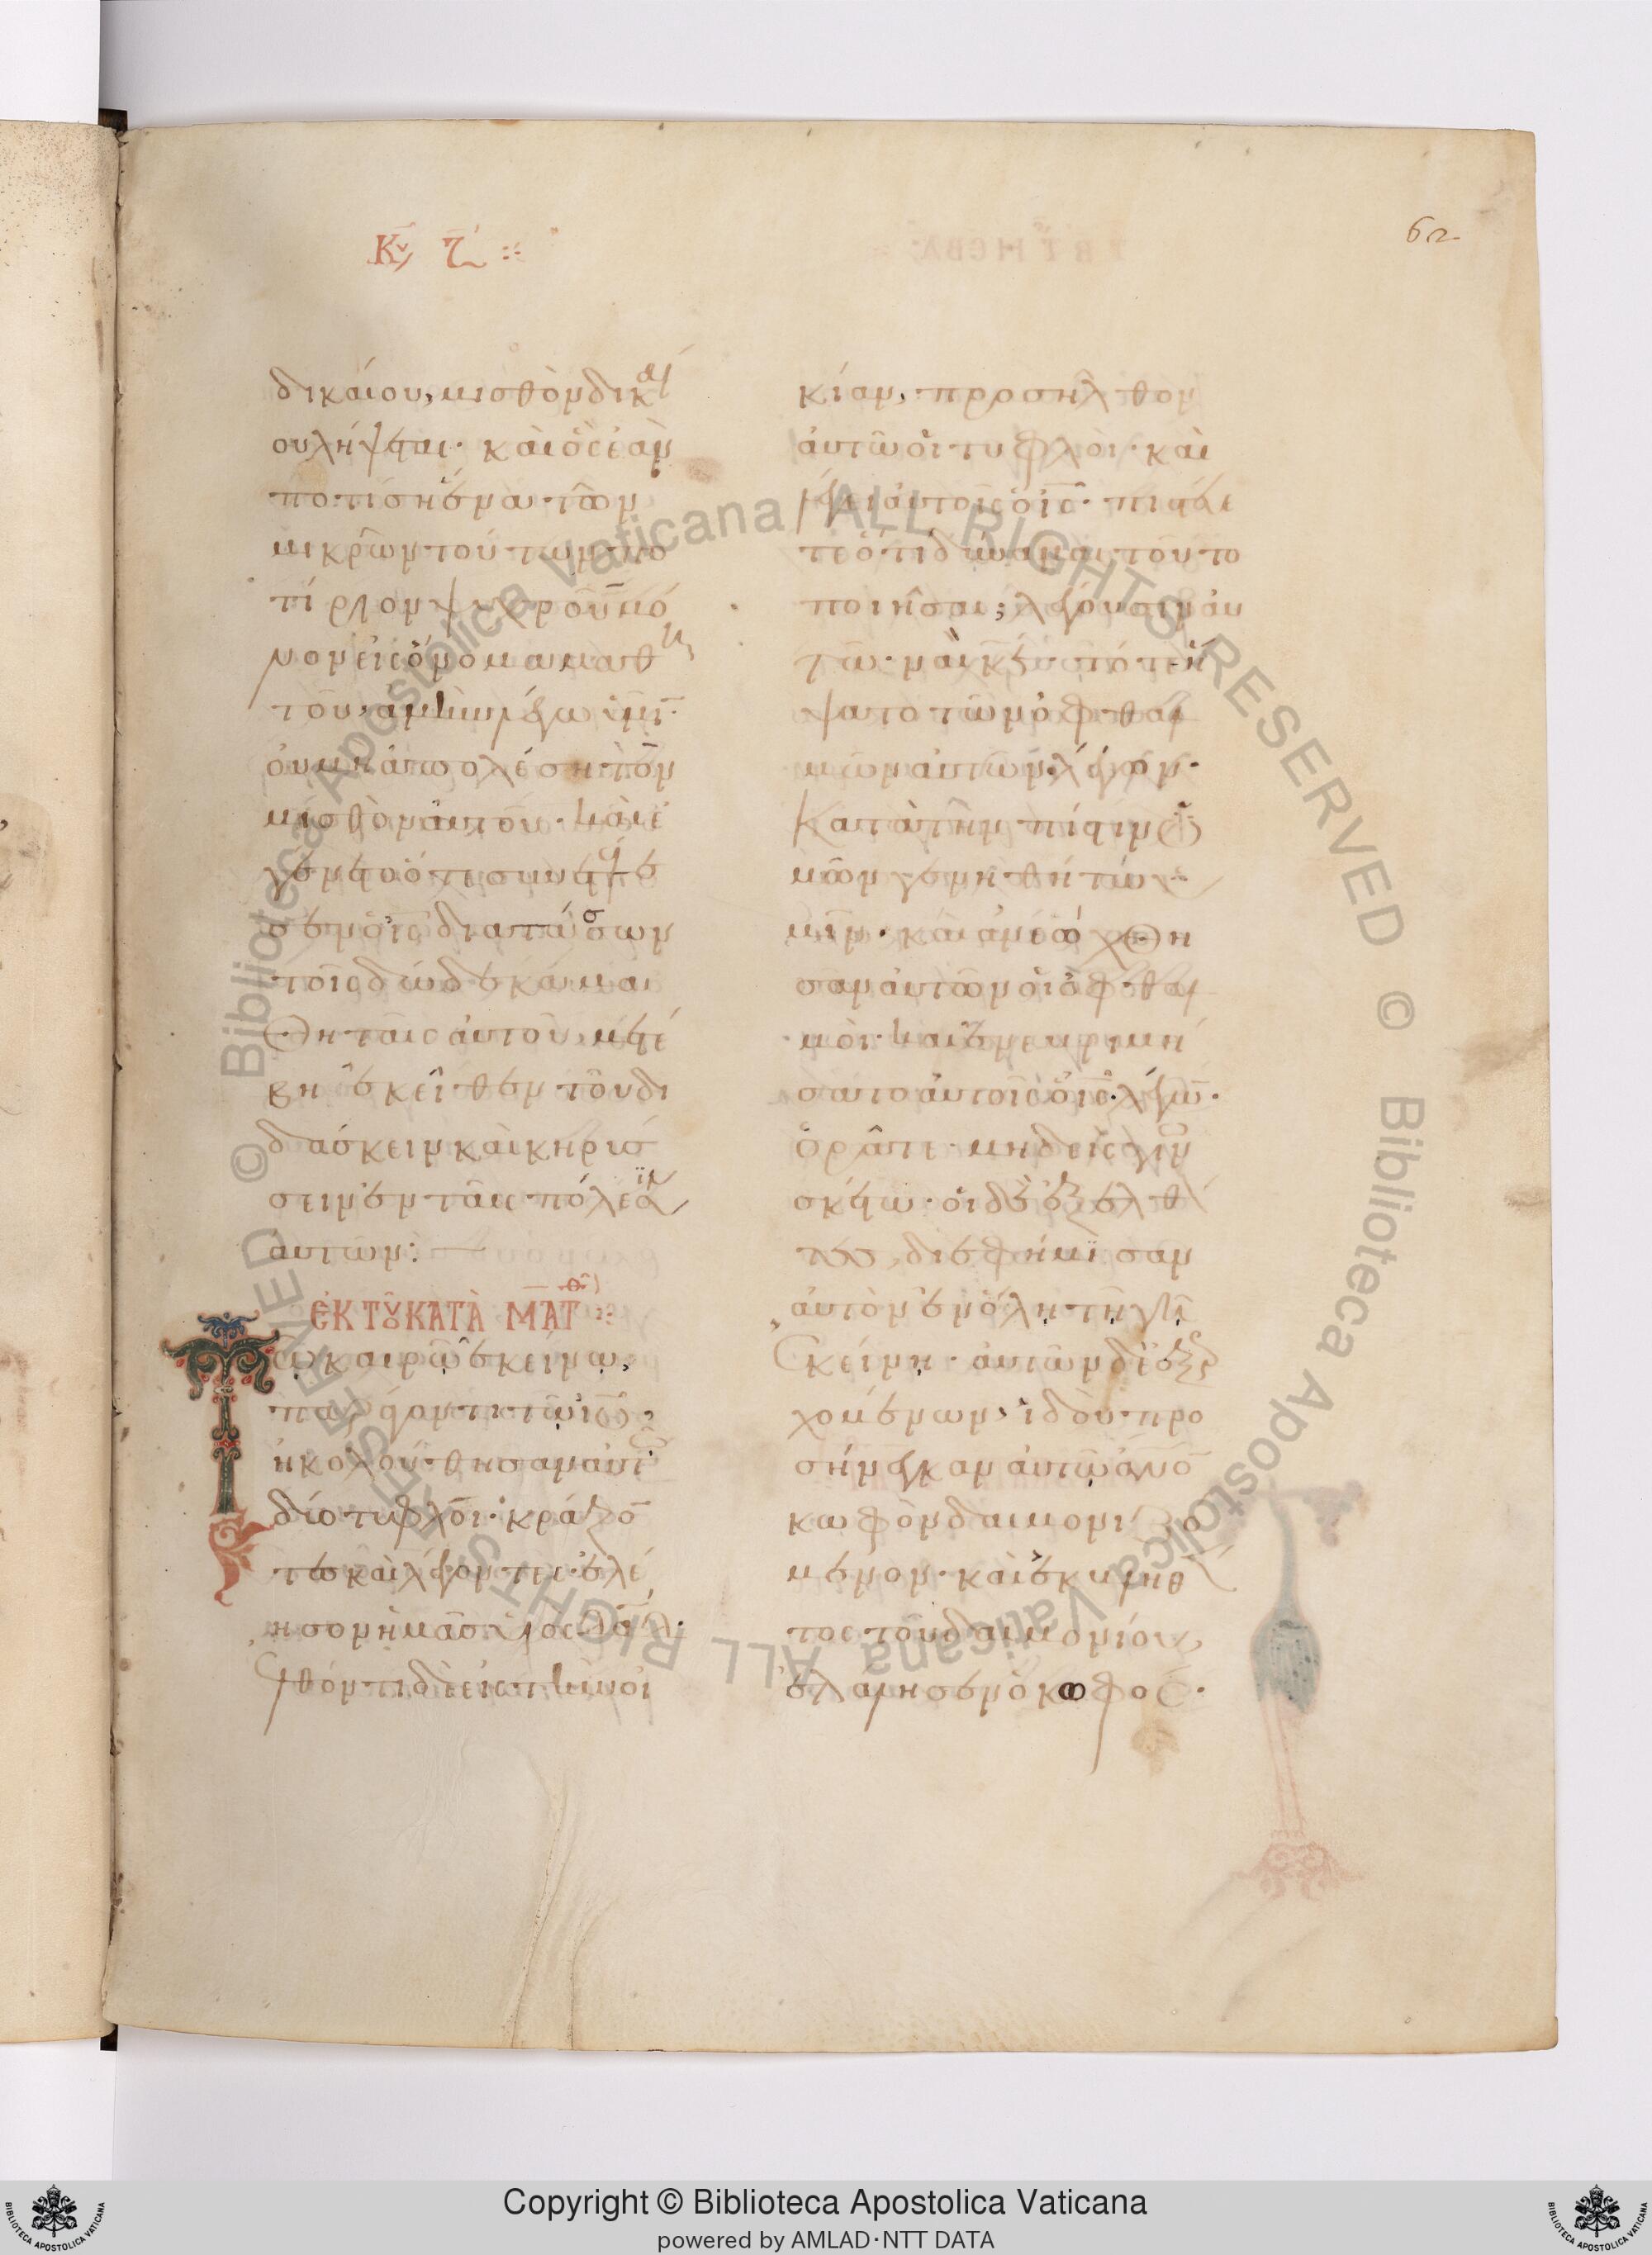 Κυ ζ
62
δικαίου, μισθὸν δικαί
ου λήψεται· καὶ ὃς ἐὰν
ποτίση ἕνα τῶν
μικρῶν τούτων πο
τίριον ψυχροῦ μό
νον εἰς ὄνομα μαθη
τοῦ, ἀμὴν λέγω ὑμῖ·
οὐ μὴ ἀπολέση τὸν
μισθὸν αὐτοῦ· καὶ ἐ
γένετο ὅτε συνετέλε
σεν ὁ ις διατάσσων
τοῖς δώδεκα μαι
θηταῖς αὐτοῦ, μετέ
βη ἐκεῖθεν τοῦ δι
δάσκειν καὶ κηρύσ
σειν ἐν ταῖς πόλεσιν
αυτων:
ἐκ τοῦ κατὰ ματθ
Τῷ καιρῷ ἐκείνῳ,
παράγοντι τῷ ιυ,
ἠκολούθησαν αὐτῶ
δύο τυφλοὶ· κράζο
τες καὶ λέγοντες· ἐλέ
ησον ἡμᾶς υἱὸς δαδ·
ἐλθόντι δὲ εἰς τὴν οἰ
κίαν, προσῆλθον
αὐτῶ οἱ τυφλοὶ· καὶ
λέγει αὐτοῖς ὁ ις· πιστεύε
τε ὅτι δύναμαι τοῦτο
ποιῆσαι; λέγουσιν αὐ
τῶ· ναὶ κε· τότε ἥ
ψατο τῶν ὀφθαλ
μῶν αὐτῶν λέγων·
Κατὰ τὴν πίστιν ὑ
μῶν γενηθήτω ὑ
μῖν· καὶ ἀνεώχθη
σαν αὐτῶν οἱ ὀφθαλ
μοὶ· καὶ ἐνεβριμή
σατο αὐτοῖς ὁ ις· λέγω·
ὁρᾶτε μηδεὶς γιν
σκέτω· οἱ δὲ ἐξελθό
τες, διεφήμισαν
αὐτὸν ἐν ὅλῃ τῇ γῇ
Ἐκείνῃ· αὐτῶν δὲ ἐξερ
χομένων, ἰδοὺ προ
σήνεγκαν αὐτῷ ανον
κωφὸν δαιμονιζό
μενον· καὶ ἐκβληθέ
τος τοῦ δαιμονίου,
ἐλάλησεν ὁ κωφός·
© Biblioteca Apostolica Vaticana ALL RIGHTS RESERVED © Biblioteca Apostolica Vaticana ALL RIGHTS RESERVED
BIBLIOTECA APOSTOLICA VATICANA
Copyright © Biblioteca Apostolica Vaticana
powered by AMLAD·NTT DATA
BIBLIOTECA APOSTOLICA VATICANA